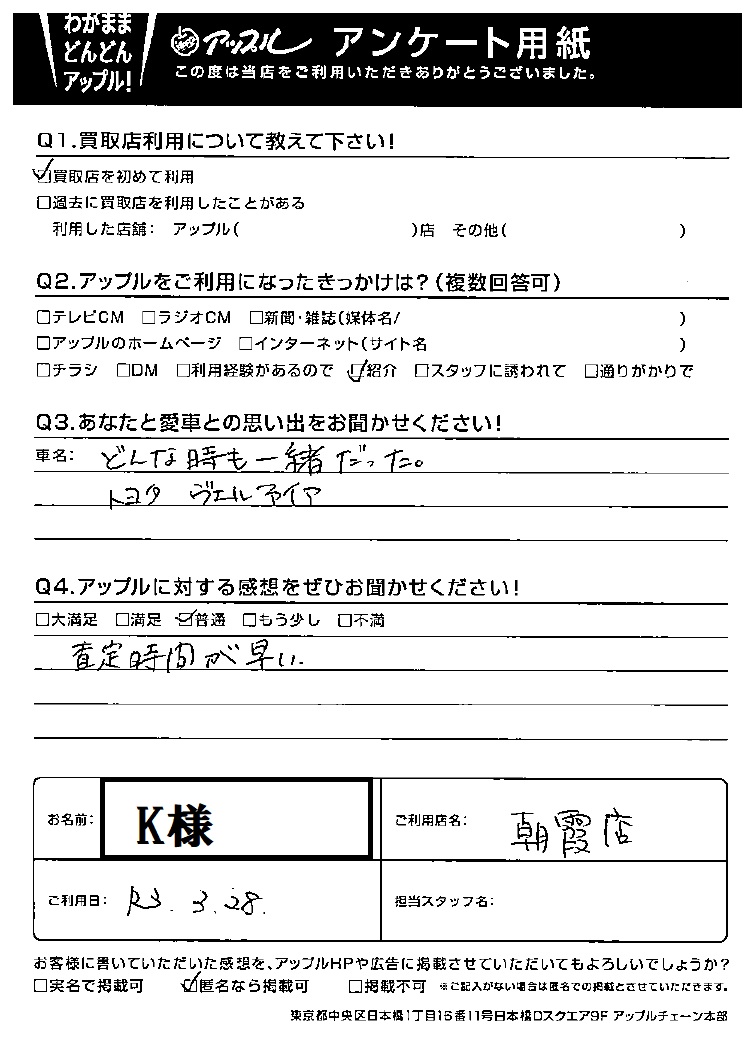 わがまま
どんどん
アップル!
アップル アンケート用紙
この度は当店をご利用いただきありがとうございました。
Q1.買取店利用について教えて下さい!
☑買取店を初めて利用
□過去に買取店を利用したことがある
利用した店舗: アップル( )店 その他( )
Q2.アップルをご利用になったきっかけは?(複数回答可)
□テレビCM □ラジオCM □新聞・雑誌(媒体名/ )
□アップルのホームページ □インターネット(サイト名 )
□チラシ □DM □利用経験があるので ☑紹介 □スタッフに誘われて □通りがかりで
Q3.あなたと愛車との思い出をお聞かせください!
車名: どんな時も一緒だった。
トヨタ ヴェルファイア
Q4.アップルに対する感想をぜひお聞かせください!
□大満足 □満足 ☑普通 □もう少し □不満
査定時間が早い.
お名前: K様
ご利用店名: 朝霞店
ご利用日: R3.3.28.
担当スタッフ名:
お客様に書いていただいた感想を、アップルHPや広告に掲載させていただいてもよろしいでしょうか?
□実名で掲載可 ☑匿名なら掲載可 □掲載不可 ※ご記入がない場合は匿名での掲載とさせていただきます。
東京都中央区日本橋1丁目16番11号日本橋Dスクエア9F アップルチェーン本部